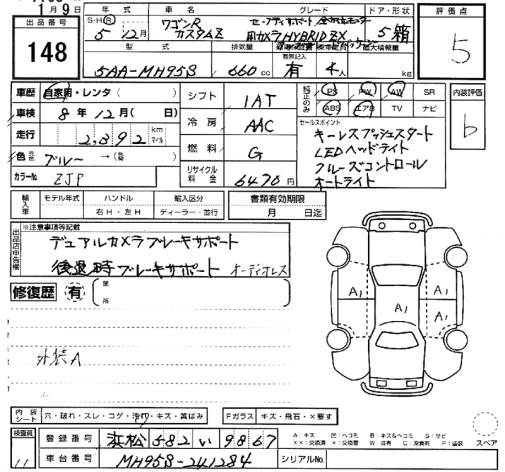 月9日
出品番号 148
年式 S・H・R 5年12月
車名 ワゴンR カスタムZ
グレード セーフティサポート 全方位モニター用カメラ HYBRID ZX
ドア・形状 5 箱
評価点 5
型式 5AA-MH95S
排気量 660 cc
有無記入 有
4人
最大積載量 kg
車歴 自家用・レンタ
車検 8年12月(日)
走行 2,892 km マイル
色 ブルー→(替)
カラーNo. ZJP
シフト IAT
冷房 AAC
燃料 G
リサイクル料金 6470円
純正のみ PS PW AW SR
ABS エアB TV ナビ
内装評価 b
セールスポイント
キーレスプッシュスタート
LEDヘッドライト
クルーズコントロール
オートライト
輸入車 モデル年式 年
ハンドル 右H・左H
輸入区分 ディーラー・並行
書類有効期限 月 日迄
出品店申告欄 ※注意事項等記載
デュアルカメラブレーキサポート
後退時ブレーキサポート オーディオレス
修復歴 有 箇所
外装A
A1 A1 A1
内装シート 穴・破れ・スレ・コゲ・汚れ・キズ・黄ばみ
Fガラス キズ・飛石・×要す
スペア
検査員 11
登録番号 浜松 582 い 9867
車台番号 MH95S-241284
シリアルNo.